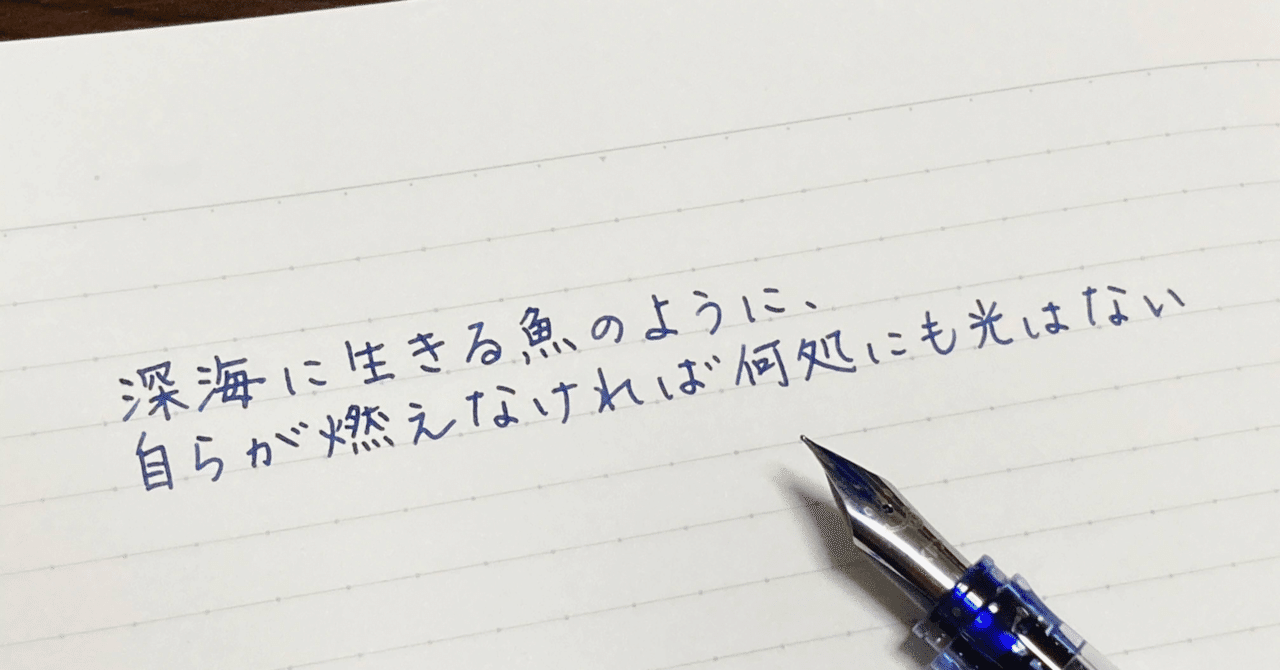 深海に生きる魚のように、
自らが燃えなければ何処にも光はない